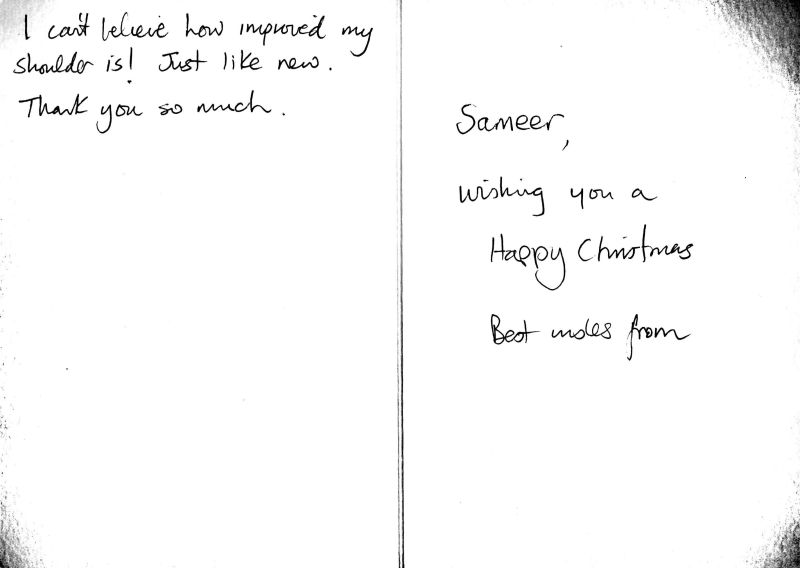 I can't believe how improved my
shoulder is! Just like new.
Thank you so much.
Sameer,
wishing you a
Happy Christmas
Best wishes from